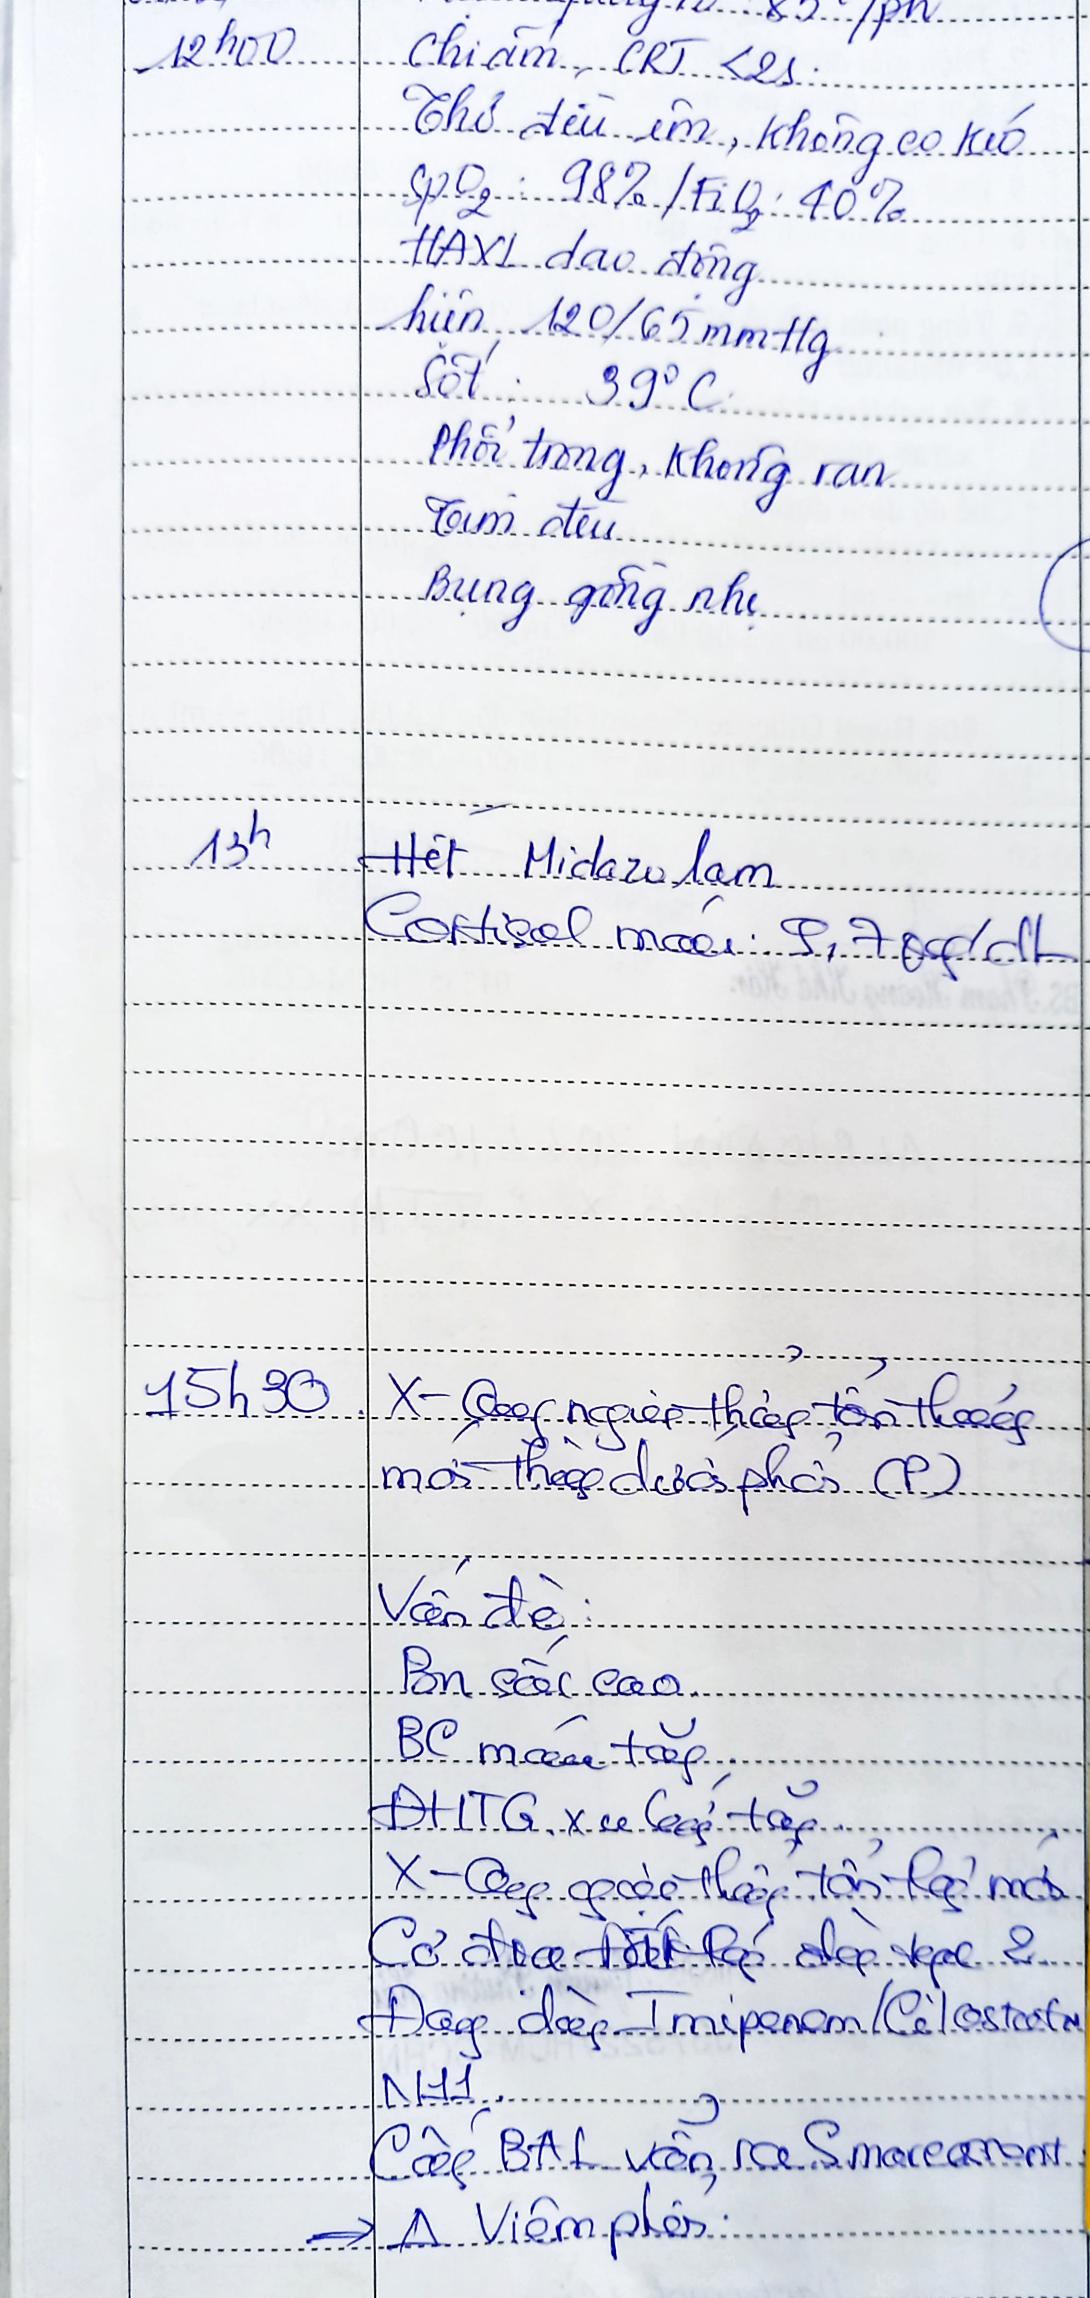 85 /ph
12h00 Chi ấm, CRT <2s.
Thở đều êm, không co kéo
SpO2: 98% / FiO2: 40%
HAXL dao động
hiện 120/65 mmHg
Sốt: 39°C
Phổi trong, không ran
Tim đều
Bụng gồng nhẹ
13h Hết Midazolam
Cortisol máu: 9,7 µg/dL
15h30 X-Quang ngực thẳng tổn thương
mới thùy dưới phổi (P)
Vấn đề:
Bn sốt cao.
BC máu tăng.
ĐHTG xu hướng tăng.
X-Quang ngực thẳng tổn thương mới
Cơ địa
Đang dùng Imipenem/Cilastatin
N11.
Cấy BAL vẫn ra S.marcescens
→ Δ Viêm phổi.